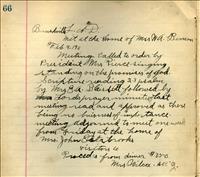 66
Brownhills L. A. D.
Met at the Home of Mrs W.A. Benson
Feb 9.
Meeting called to order by
President Mrs Pierce singing
standing on the promises of God.
Scripture reading 23 psalm
by Mrs followed by
prayer minute of last
meeting read and approved as there
being no buisness of importance
meeting adjourned to meet one week
from Friday at the home of
Mrs John
visitors 6
Proceeds from dinner
Mrs